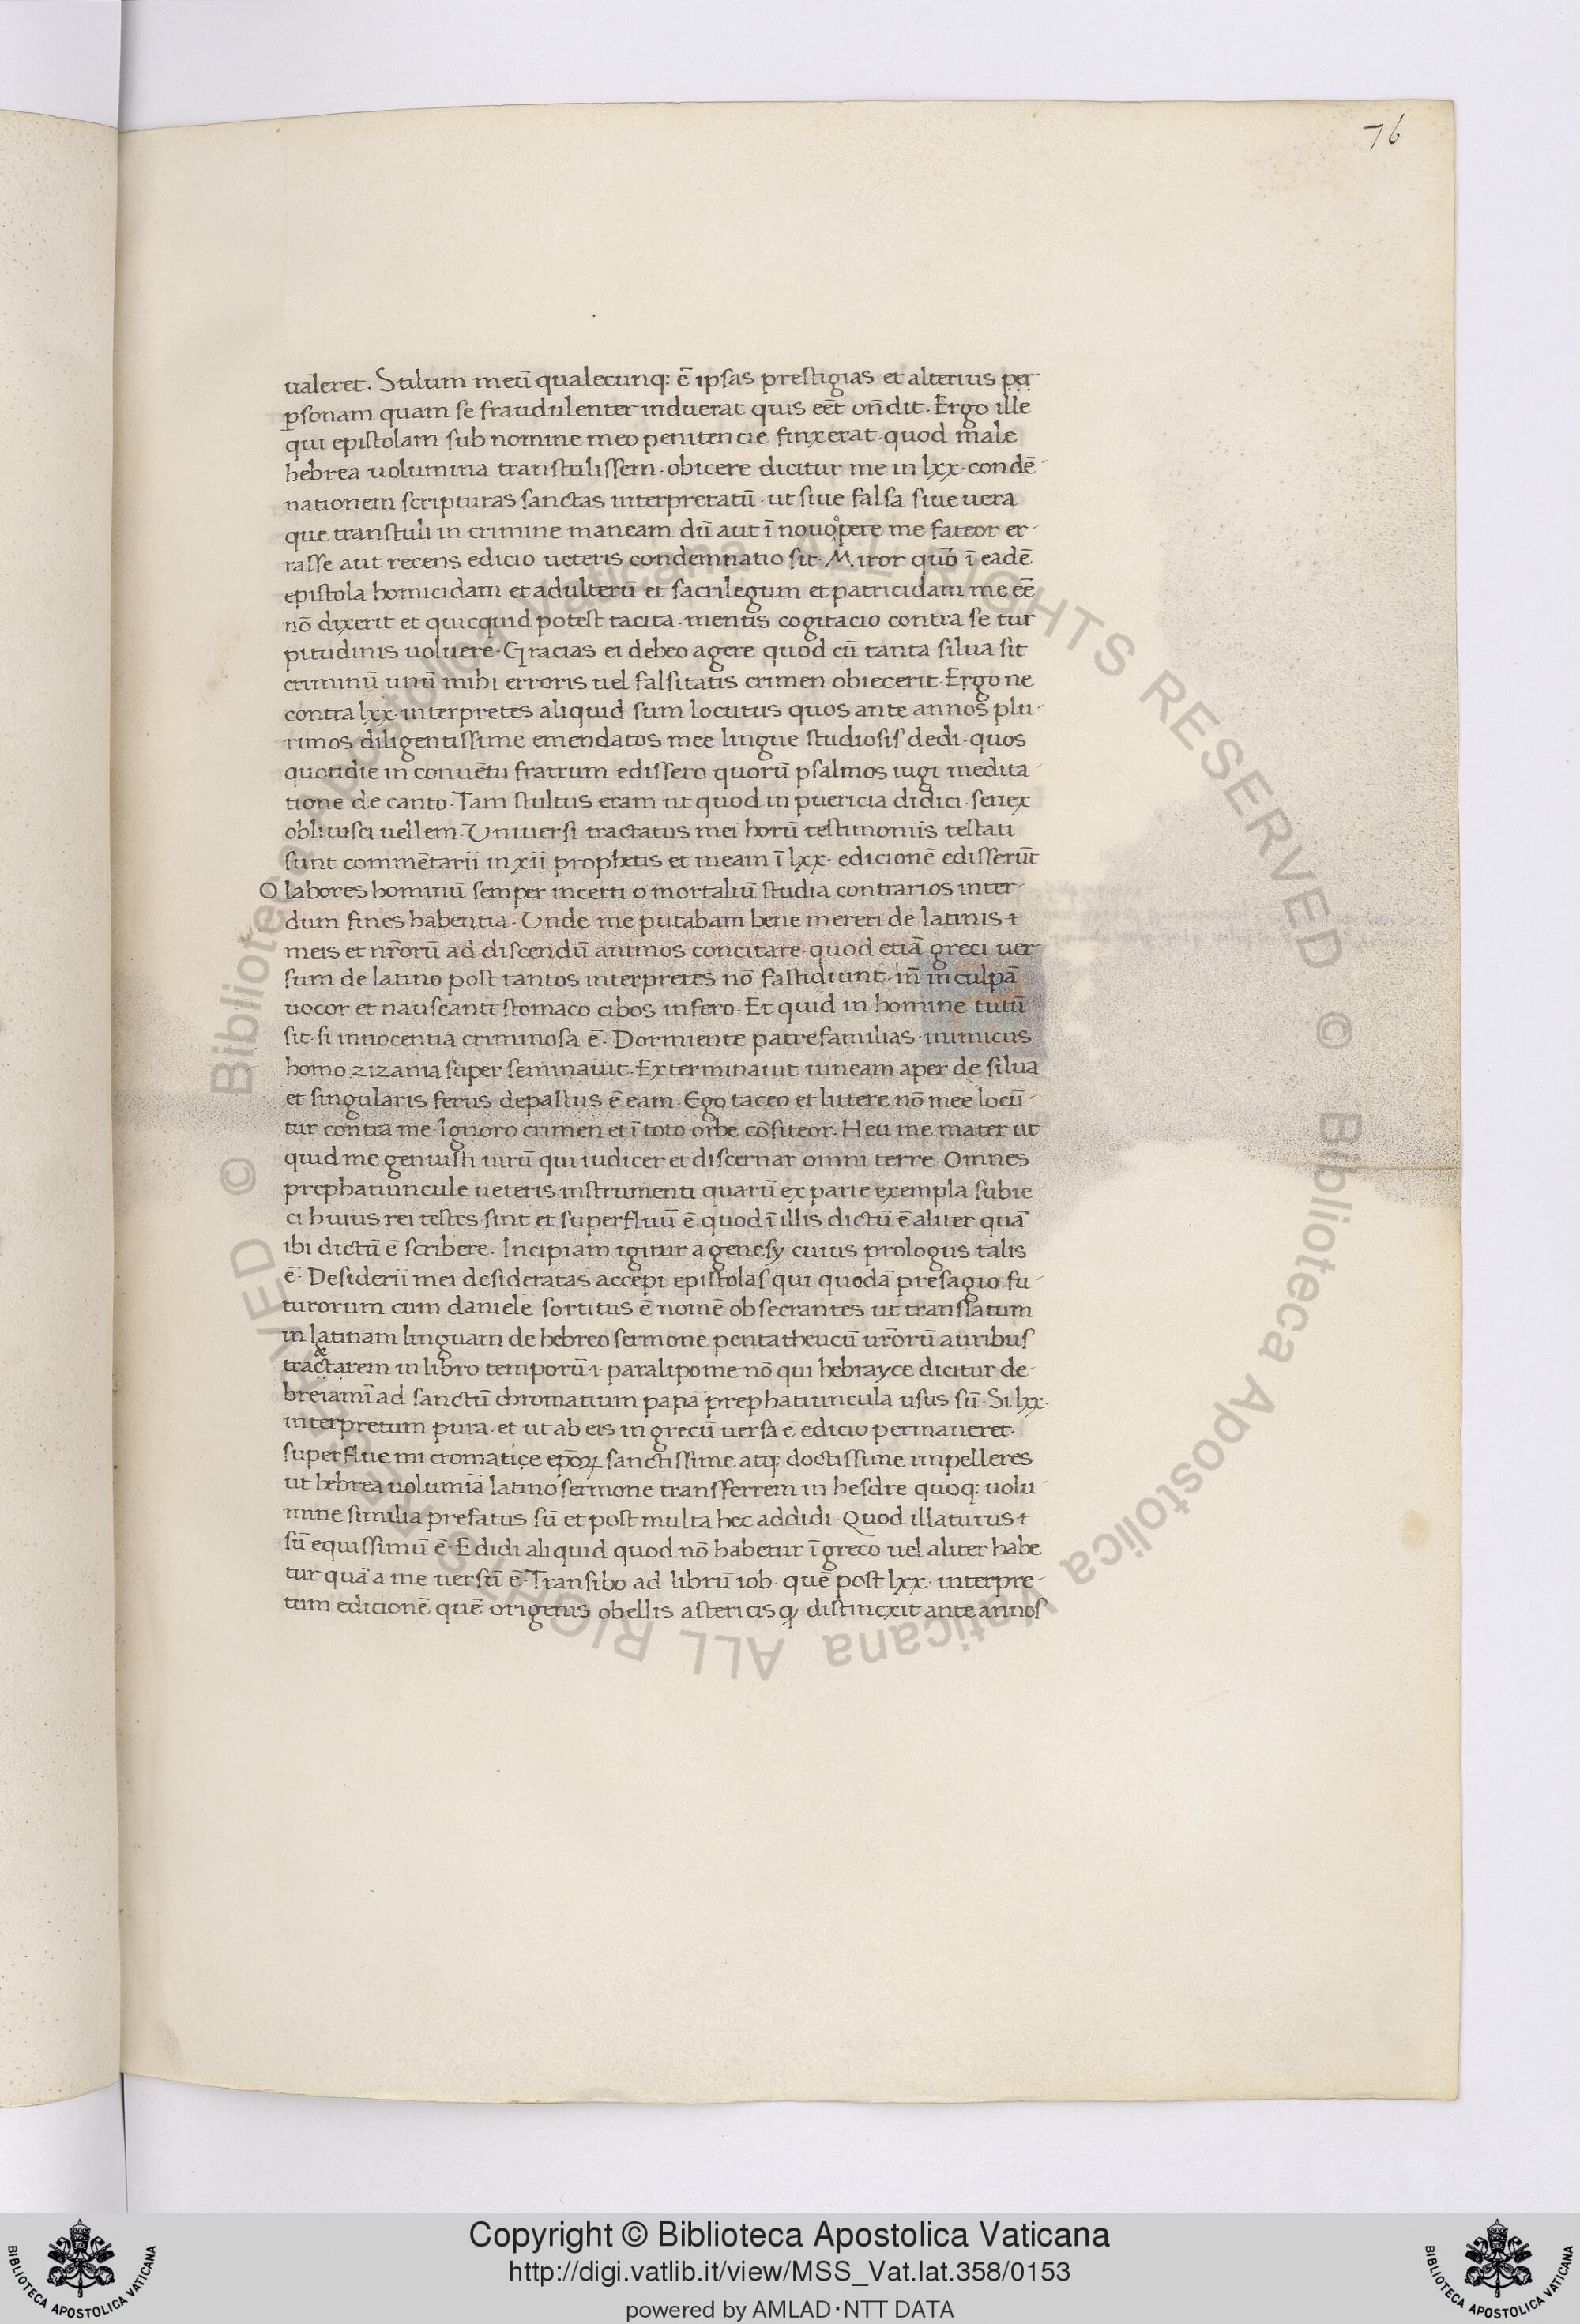 76
ualeret. Stilum meū qualecunq: ē ipsas prestigias et alterius per
psonam quam se fraudulenter induerat quis eēt on̄dit. Ergo ille
qui epistolam sub nomine meo penitencie finxerat. quod male
hebrea uolumina transtulissem. obicere dicitur me in lxx. condē-
nationem scripturas sanctas interpretatū. ut siue falsa siue uera
que transtuli in crimine maneam dū aut ī nouo opere me fateor er-
rasse aut recens edicio ueteris condemnatio sit. Miror quō ī eadē
epistola homicidam et adulterū et sacrilegum et patricidam me eē
nō dixerit et quicquid potest tacita. mentis cogitacio contra se tur
pitudinis uoluere. Gracias ei debeo agere quod cū tanta silua sit
criminū unū mihi erroris uel falsitatis crimen obiecerit. Ergo ne
contra lxx. interpretes aliquid sum locutus quos ante annos plu-
rimos diligentissime emendatos mee lingue studiosis dedi. quos
quotidie in conuētu fratrum edissero quorū psalmos iugi medita-
tione de canto. Tam stultus eram ut quod in puericia didici. senex
obliuisci uellem. Uniuersi tractatus mei horū testimoniis testati
sunt commētarii in xii prophetis et meam ī lxx. edicionē edisserūt
O labores hominū semper incerti o mortaliū studia contrarios inter-
dum fines habentia. Unde me putabam bene mereri de latinis ⁊
meis et nr̄orū ad discendū animos concitare. quod etiā greci uer
sum de latino post tantos interpretes nō fastidiunt. in̄ in culpā
uocor et nauseanti stomaco cibos infero. Et quid in homine tutū
sit. si innocentia criminosa ē. Dormiente patrefamilias. inimicus
homo zizania super seminauit. Exterminauit uineam aper de silua
et singularis ferus depastus ē eam. Ego taceo et littere nō mee locū-
tur contra me. Ignoro crimen et ī toto orbe cōfiteor. Heu me mater ut
quid me genuisti uirū qui iudicer et discernar omni terre. Omnes
prephatiuncule ueteris instrumenti quarū ex parte exempla subie
ci huius rei testes sint et superfluū ē quod ī illis dictū ē aliter quā
ibi dictū ē scribere. Incipiam igitur a genesy cuius prologus talis
ē. Desiderii mei desideratas accepi epistolas qui quodā presagio fu-
turorum cum daniele sortitus ē nomē obsecrantes ut translatum
in latinam linguam de hebreo sermone pentatheucū ur̄orū auribus
&
tractarem in libro temporū .i. paralipomenō qui hebrayce dicitur de-
breiamī ad sanctū chromatium papā prephatiuncula usus sū. Si lxx.
interpretum pura. et ut ab eis in grecū uersa ē edicio permaneret.
superflue mi cromatice ep̄oꝝ sanctissime atq: doctissime impelleres
ut hebrea uolumīa latino sermone transferrem in hesdre quoq: uolu-
mine similia prefatus sū et post multa hec addidi. Quod illaturus ⁊
sū equissimū ē. Edidi aliquid quod nō habetur ī greco uel aliter habe
tur quā a me uersū ē. Transibo ad librū iob. quē post lxx. interpre-
tum edicionē quē origenis obellis astericisq; distincxit ante annos
© Biblioteca Apostolica Vaticana ALL RIGHTS RESERVED © Biblioteca Apostolica Vaticana ALL RIGHTS RESERVED
BIBLIOTECA APOSTOLICA VATICANA
Copyright © Biblioteca Apostolica Vaticana
http://digi.vatlib.it/view/MSS_Vat.lat.358/0153
powered by AMLAD·NTT DATA
BIBLIOTECA APOSTOLICA VATICANA